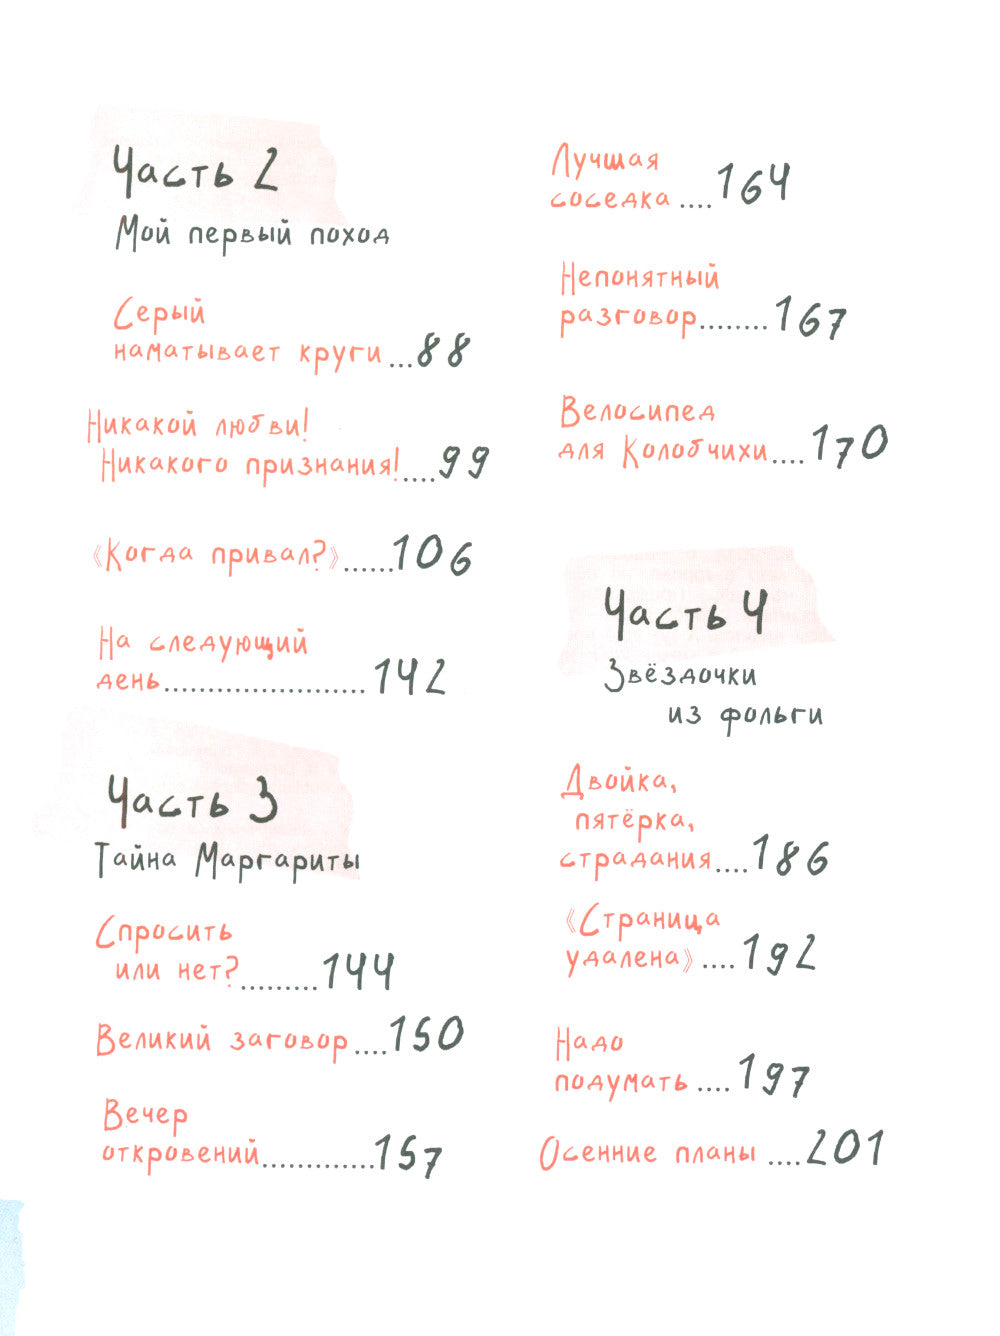 Часть 2
Мой первый поход
Серый
наматывает круги ...88
Никакой любви!
Никакого признания!....99
《Когда привал?》......106
На следующий
день...................... 142
Часть 3
Тайна Маргариты
Спросить
или нет?.........144
Великий заговор ....150
Вечер
откровений.............157
Лучшая
соседка ....164
Непонятный
разговор........167
Велосипед
для Колобчихи....170
Часть 4
Звёздочки
из фольги
Двойка,
пятёрка,
страдания....186
《Страница
удалена》....192
Надо
подумать ....197
Осенние планы ....201